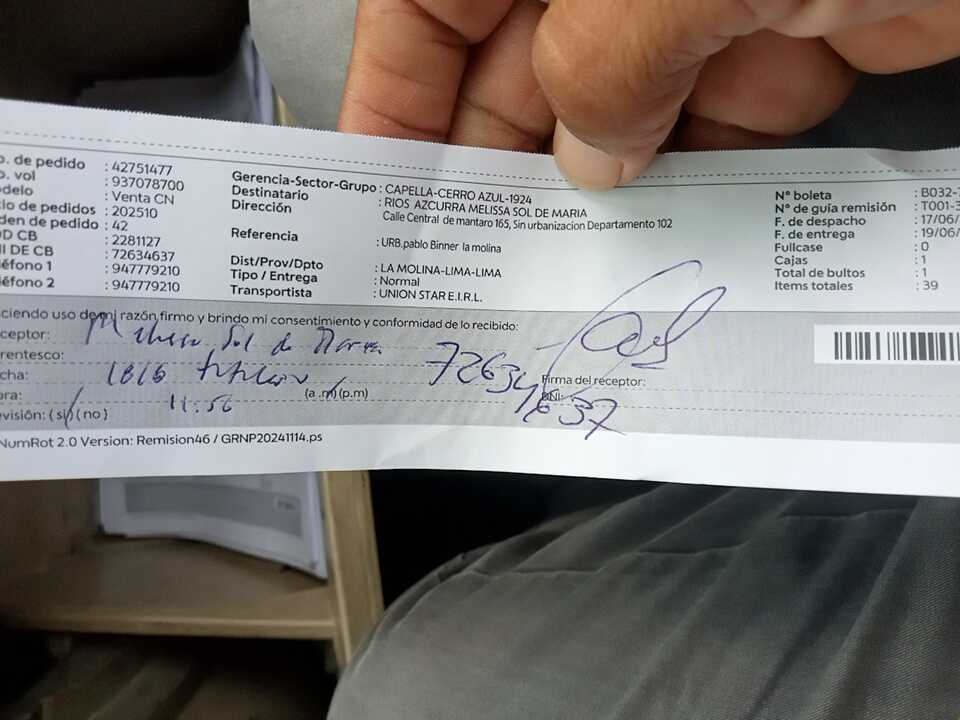 o. de pedido : 42751477
o. vol : 937078700
odelo : Venta CN
cio de pedidos : 202510
rden de pedido : 42
OD CB : 2281127
NI DE CB : 72634637
léfono 1 : 947779210
léfono 2 : 947779210
Gerencia-Sector-Grupo : CAPELLA-CERRO AZUL-1924
Destinatario : RIOS AZCURRA MELISSA SOL DE MARIA
Dirección : Calle Central de mantaro 165, Sin urbanizacion Departamento 102
Referencia : URB.pablo Binner la molina
Dist/Prov/Dpto : LA MOLINA-LIMA-LIMA
Tipo / Entrega : Normal
Transportista : UNION STAR E.I.R.L.
N° boleta : B032-
N° de guía remisión : T001-3
F. de despacho : 17/06/
F. de entrega : 19/06/
Fullcase : 0
Cajas : 1
Total de bultos : 1
Items totales : 39
ciendo uso de mi razón, firmo y brindo mi consentimiento y conformidad de lo recibido:
ceptor: Sol de Maria
rentesco:
cha:
ora: 11:56 (a .m) (p.m)
72634637
Firma del receptor:
DNI:
visión: ( si ) ( no )
NumRot 2.0 Version: Remision46 / GRNP20241114.ps